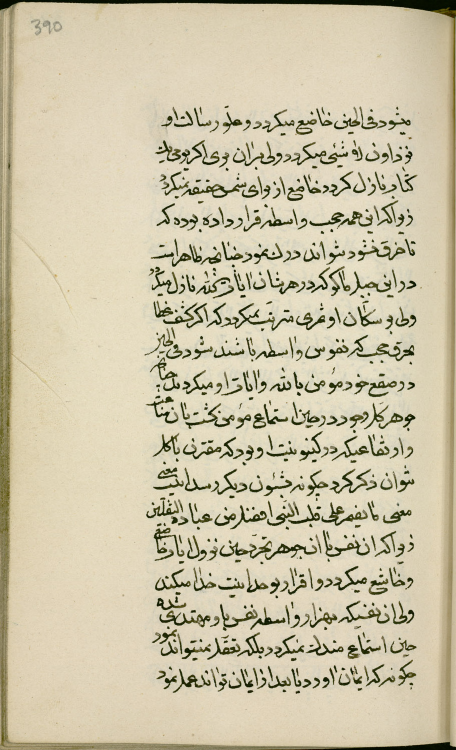 390
میشود فی الحین خاضع میکردد و علو رسالت او
نزد اون لا شیئی میکردد ولی بران بری اکر یومی
کتاب نازل کردد خاضع از برای شمس حقیقه نمیکردد
زیرا که این همه حجب واسطه قرار داده بوده که
تا خرق نشود نتواند درک نمود چنانچه ظاهر است
در این جبل ماکو که در هر شان ایات الله نازل میکردد
ولی بر سکان او ثمری مترتب نمیکردد که اکر کشف غطا
بحرق حجب که نفوس واسطه باشند شود فی الحین
در صقع خود مؤمن بالله و ایات او میکردند
جوهر کل وجود در حین استماع مؤمن کشت بان
و ارتفاعیکه در کینونیت او بود که مقترن با کل
نتوان ذکر کرد چکونه بشئون دیکر رسد اینست معنی
معنی ما یضمر علی قلب النبی افضل من عبادة الثقلین
زیرا که ان نفس با ان جوهر تجرد حین نزول ایات خاضع
و خاشع میکردد و اقرار بوحدانیت خدا میکند
ولی ان نفسیکه بهزار واسطه نفس باو مهتدی شده
حین استماع متذلت نمیکردد بلکه تعقل نمیتواند نمود
چکونه که ایمان اورد یا بعد از ایمان تواند عمل نمود